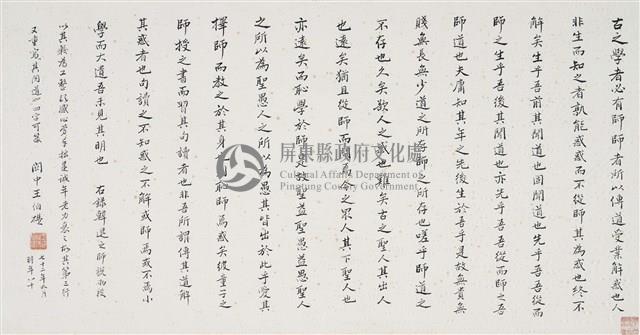 古之學者必有師師者所以傳道受業解惑也人
非生而知之者孰能惑而不從師其為惑也終不
解矣生乎吾前其聞道也固聞道也先乎吾吾從而
師之生乎吾後其聞道也亦先乎吾吾從而師之吾
師道也夫庸知其年之先後生於吾乎是故無貴無
賤無長無少道之所存師之所存也嗟乎師道之
不存也久矣欲人之惑也難矣古之聖人其出人
也遠矣猶且從師而問焉今之眾人其下聖人也
亦遠矣而恥學於師是故聖益聖愚益愚聖人
之所以為聖愚人之所以為愚其皆出於此乎愛其
擇師而教之於其身也恥師焉惑矣彼童子之
師授之書而習其句讀者也非吾所謂傳其道解
其惑者也句讀之不知惑之不解或師焉或不焉小
學而大遺吾未見其明也 右錄韓退之師說初段
其第三行
又重寫其聞道也四字可笑 閩中王伯
屏東縣政府文化處
Cultural Affairs Department of
Pingtung County Government